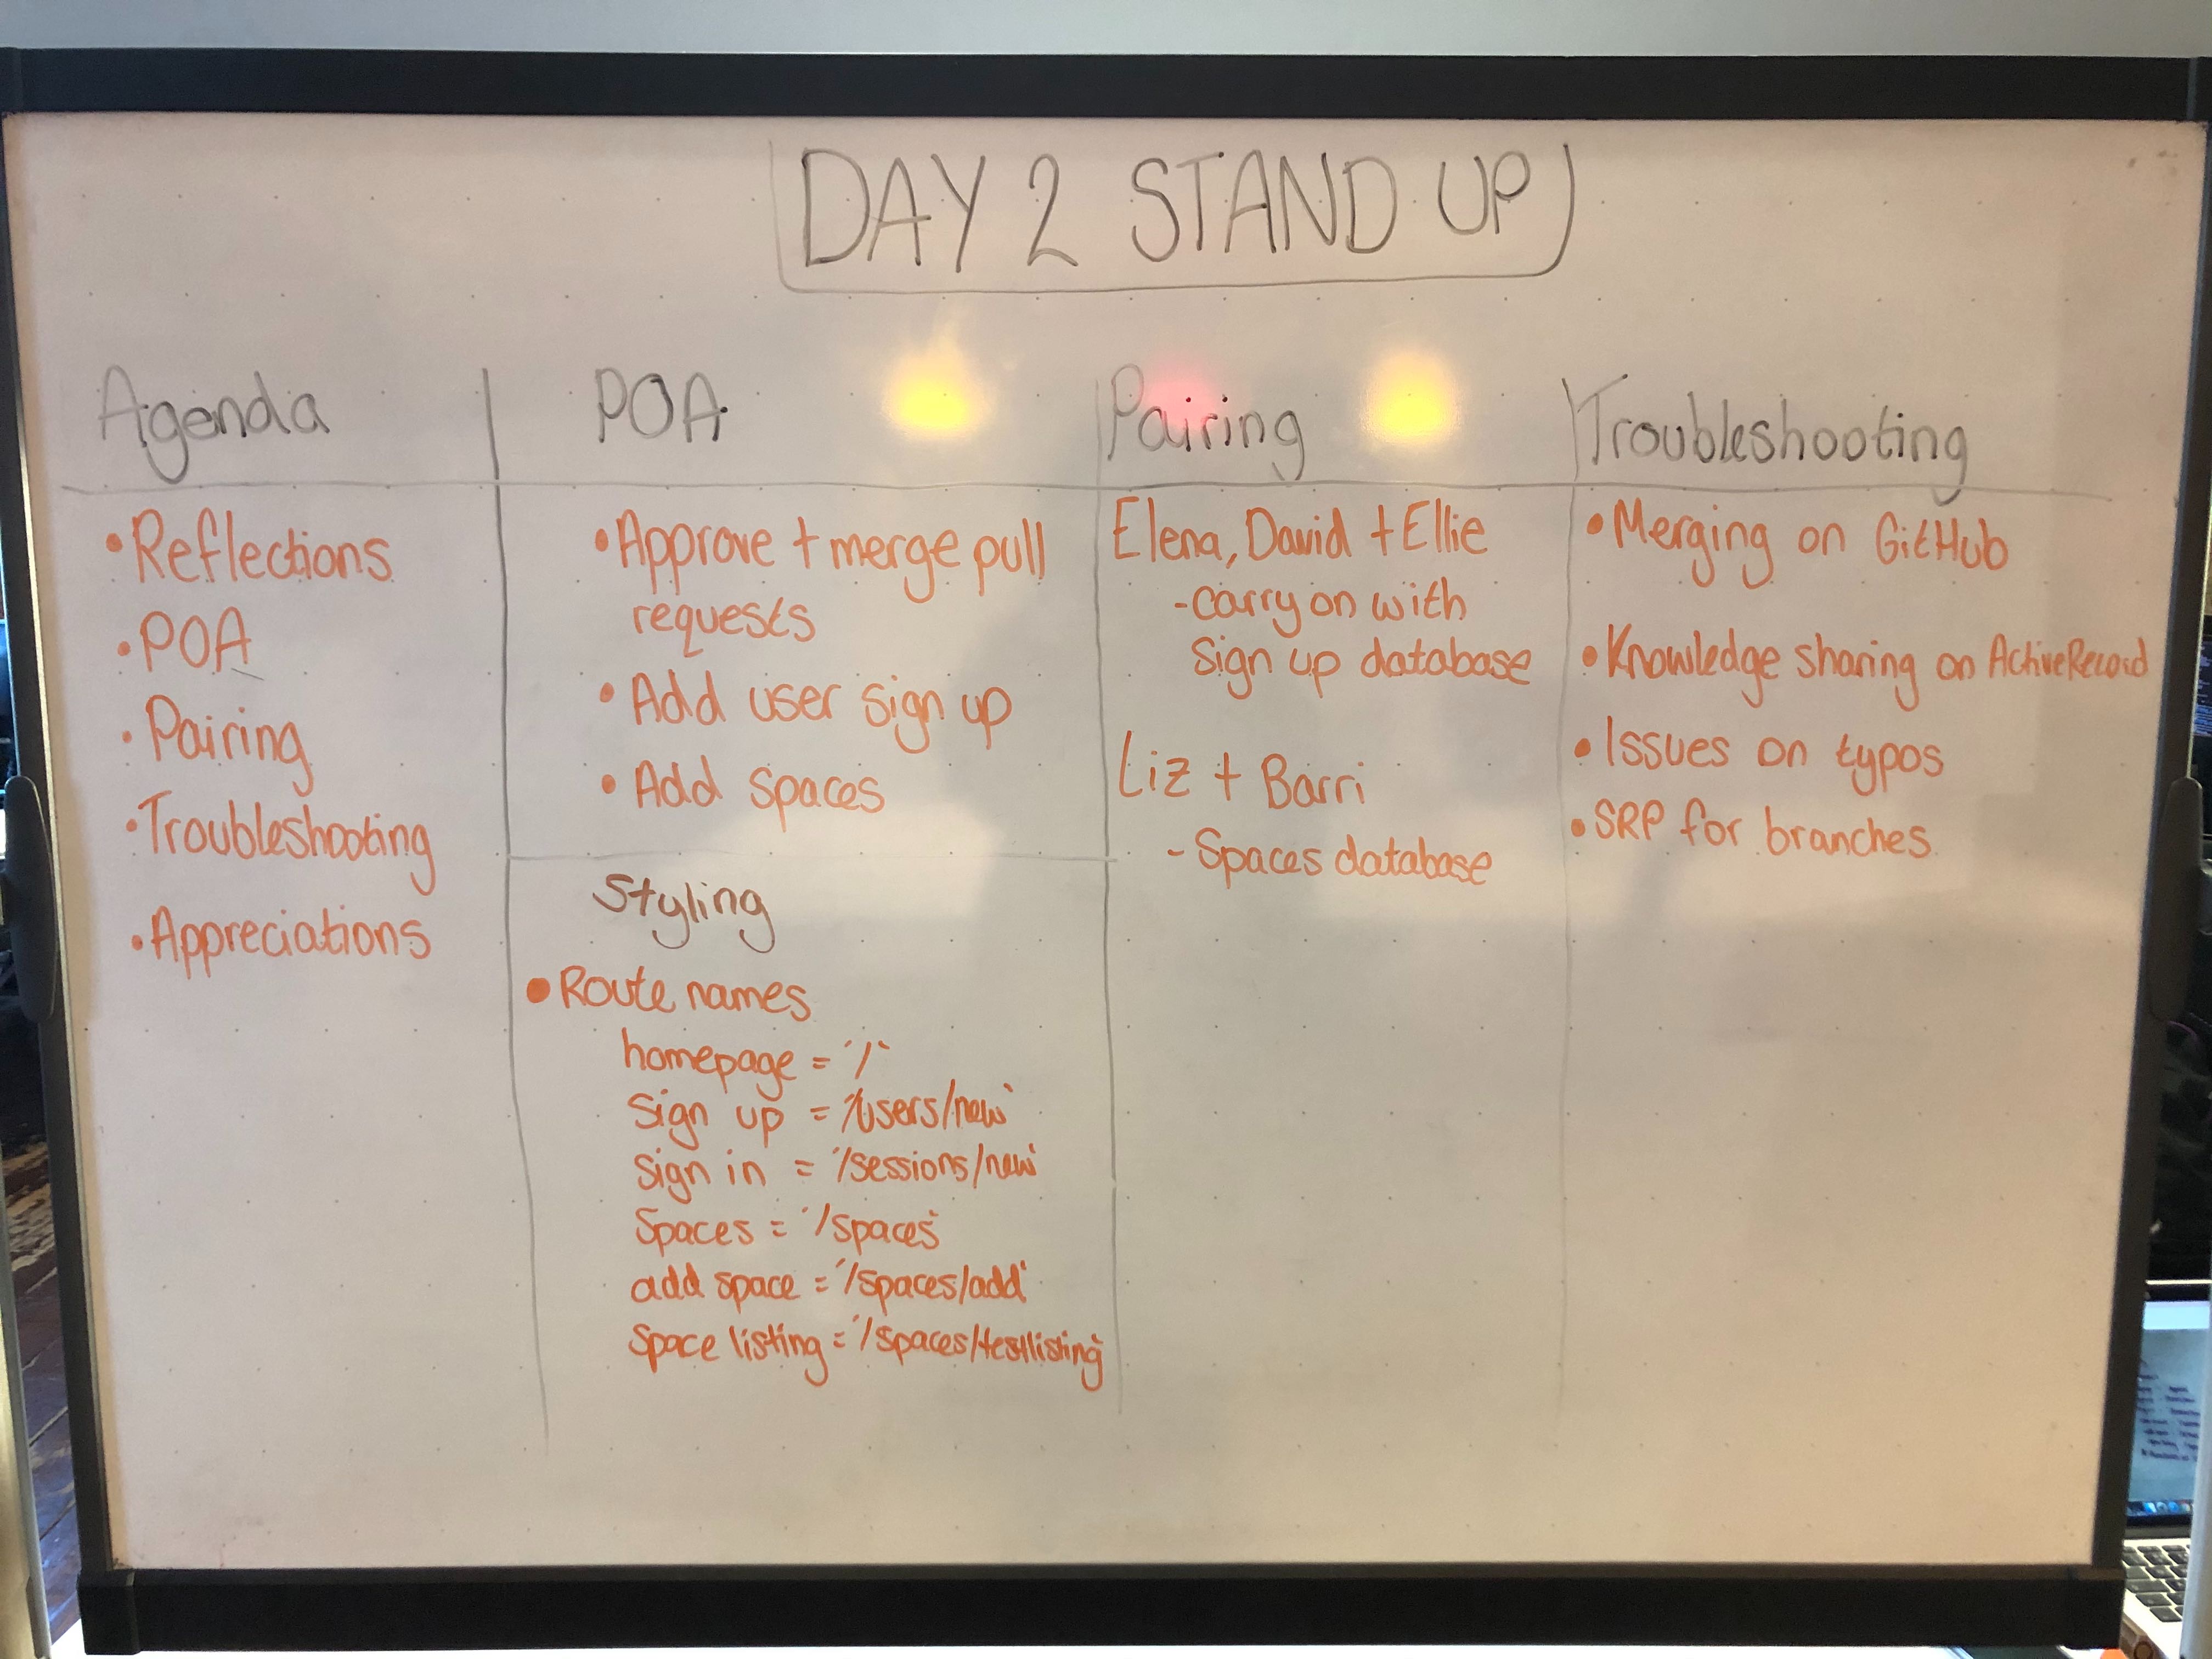 DAY 2 STAND UP
Agenda
• Reflections
• POA
• Pairing
• Troubleshooting
• Appreciations
POA
• Approve + merge pull
requests
• Add user sign up
• Add spaces
Styling
• Route names
homepage = '/'
Sign up = '/users/new'
sign in = '/sessions/new'
Spaces = '/spaces'
add space = '/spaces/add'
Space listing = '/spaces/testlisting'
Pairing
Elena, David + Ellie
- carry on with
Sign up database
Liz + Barri
- Spaces database
Troubleshooting
• Merging on GitHub
• Knowledge sharing on ActiveRecord
• Issues on typos
• SRP for branches